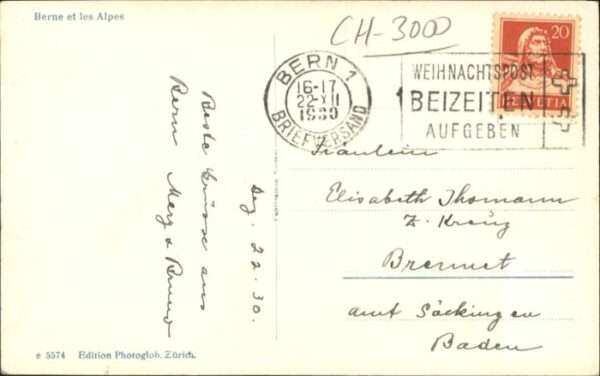 Berne et les Alpes
CH-3000
20
HELVETIA
BERN 1
16-17
22·XII
1930
BRIEFVERSAND
WEIHNACHTSPOST
BEIZEITEN
AUFGEBEN
Dez. 22. 30.
Beste Grüsse aus
Bern
Fräulein
Elisabeth Thomann
z. Kreuz
Brennet
amt Säckingen
Baden
e 5574 Edition Photoglob. Zürich.